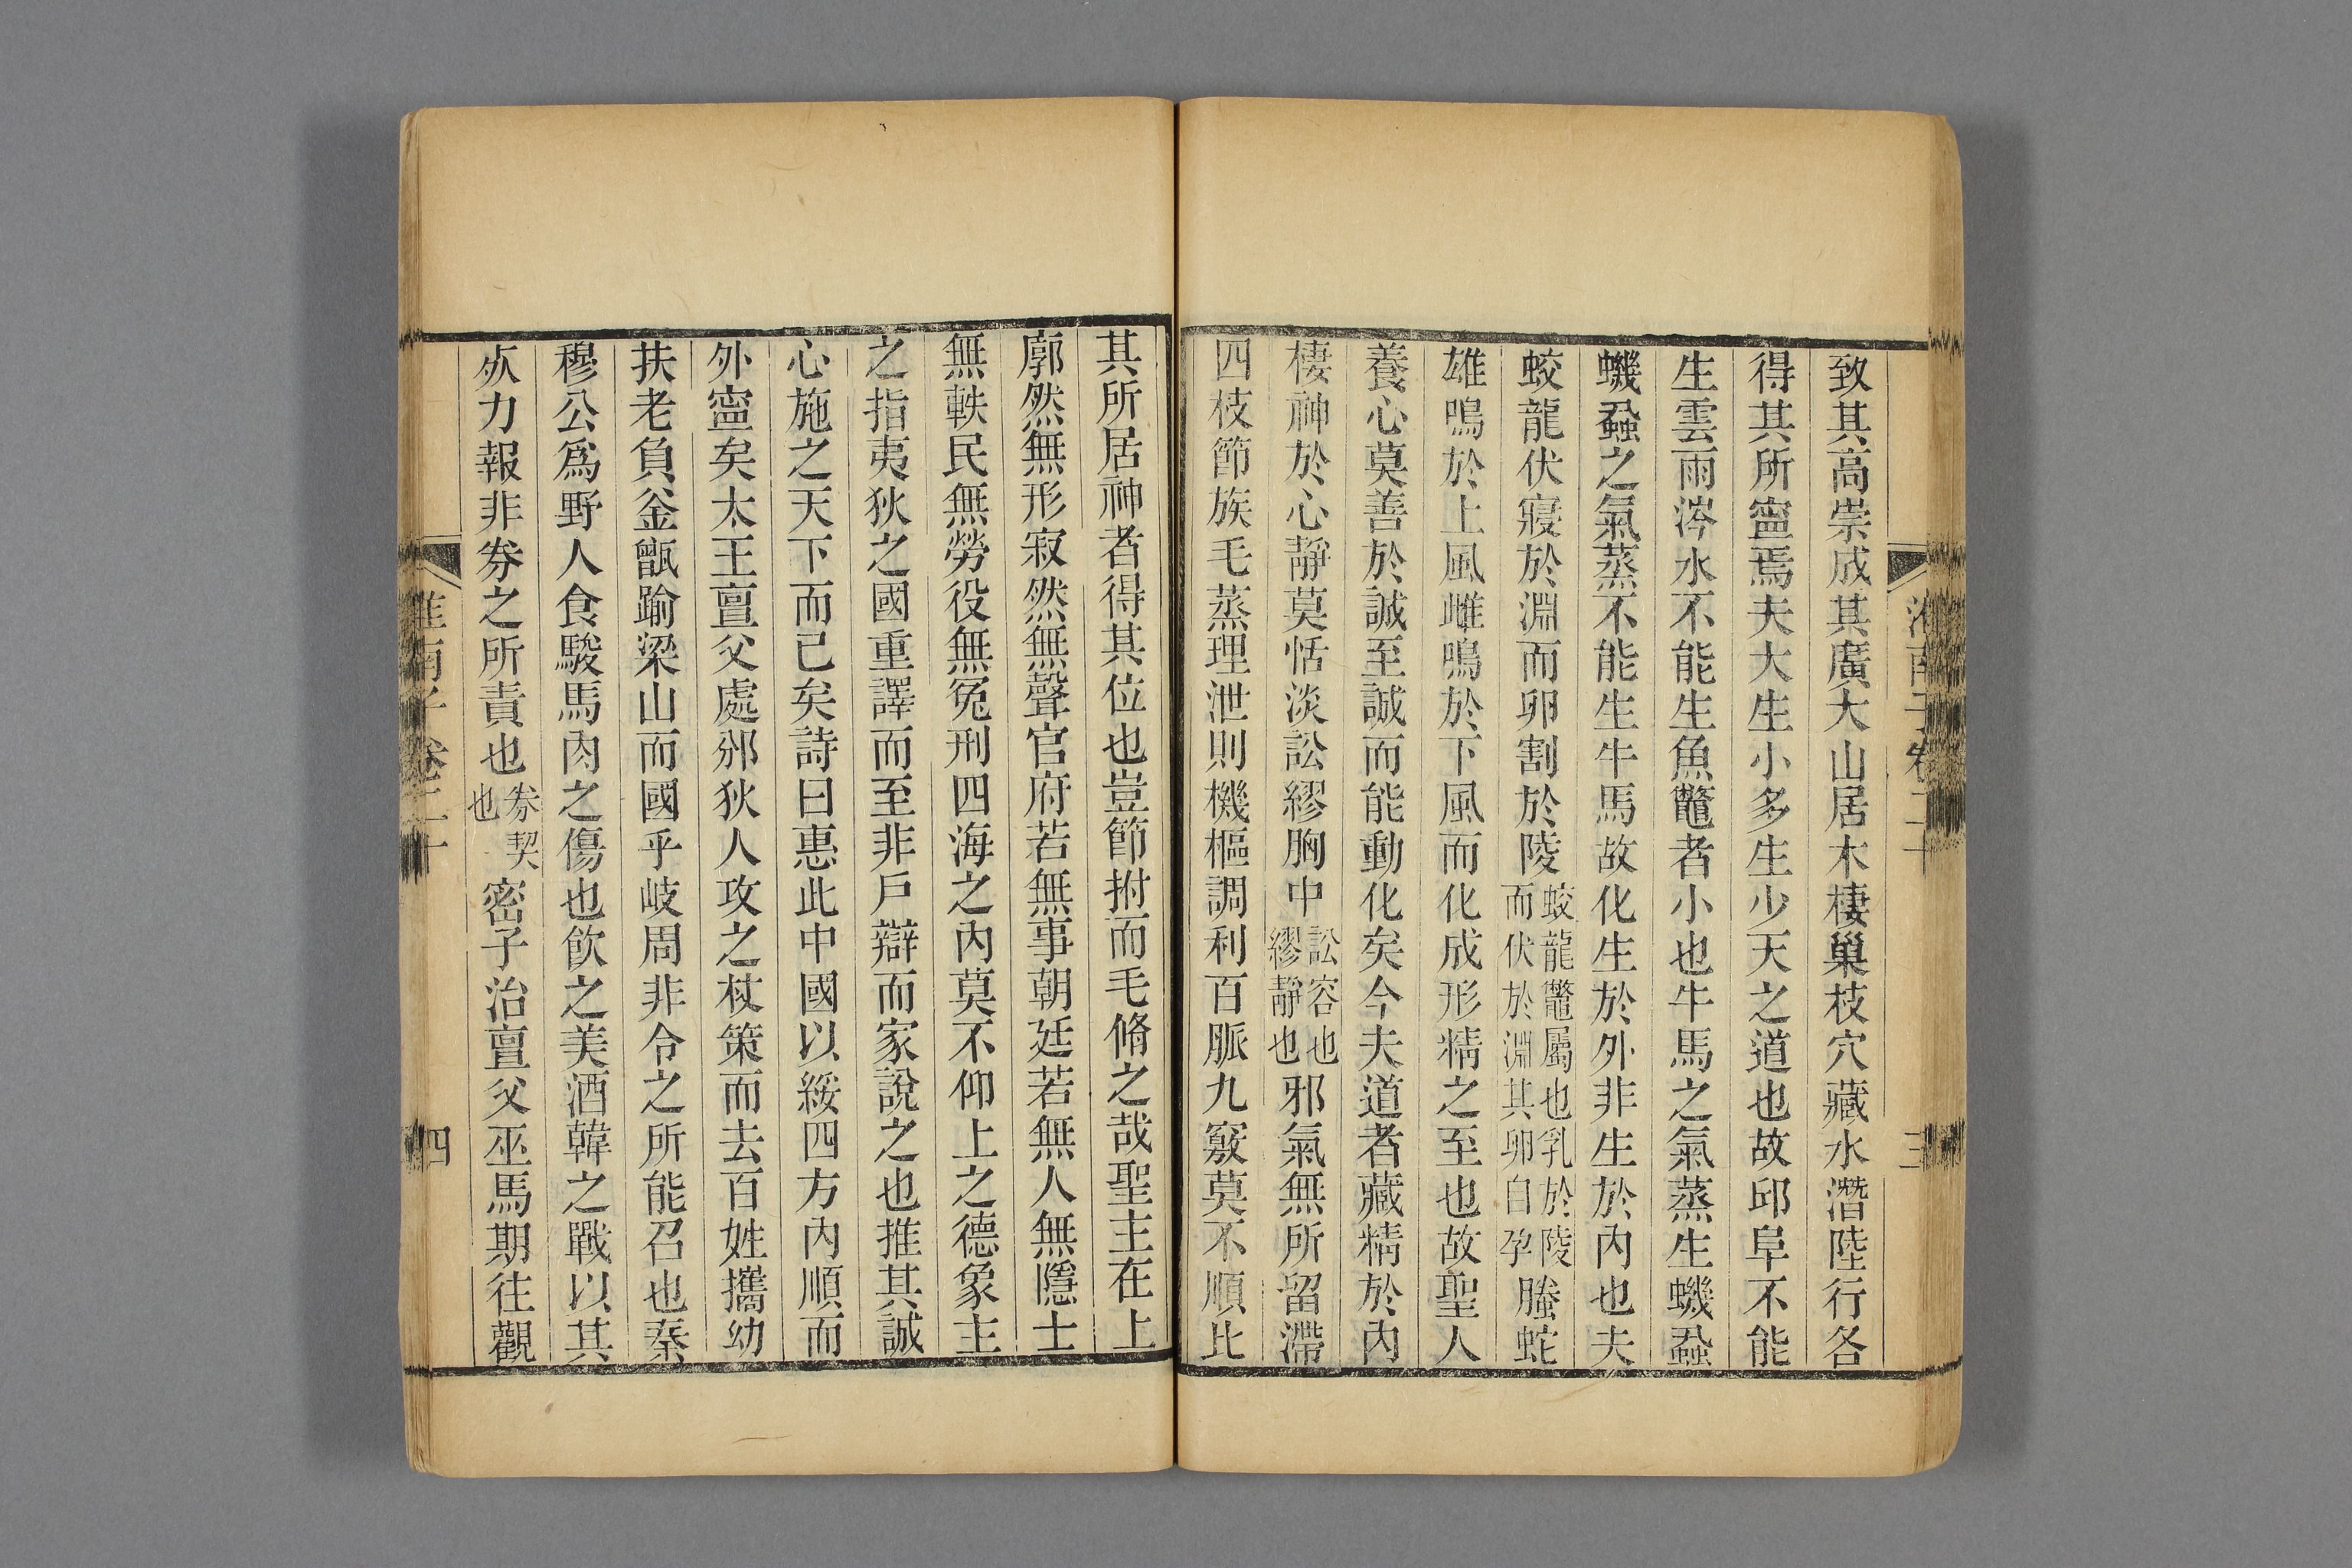 致其高崇成其廣大山居木棲巢枝穴藏水潛陸行各
得其所寍焉夫大生小多生少天之道也故邱阜不能
生雲雨涔水不能生魚鼈者小也牛馬之氣蒸生蟣蝨
蟣蝨之氣蒸不能生牛馬故化生於外非生於內也夫
蛟龍伏寢於淵而卵割於陵蛟龍鼈屬也乳於陵而伏於淵其卵自孕螣蛇
雄鳴於上風雌鳴於下風而化成形精之至也故聖人
養心莫善於誠至誠而能動化矣今夫道者藏精於內
棲神於心靜莫恬淡訟繆胸中訟容也繆靜也邪氣無所留滯
四枝節族毛蒸理泄則機樞調利百脈九竅莫不順比
淮南子卷二十
三
其所居神者得其位也豈節拊而毛脩之哉聖主在上
廓然無形寂然無聲官府若無事朝廷若無人無隱士
無軼民無勞役無冤刑四海之內莫不仰上之德象主
之指夷狄之國重譯而至非戶辯而家說之也推其誠
心施之天下而已矣詩曰惠此中國以綏四方內順而
外寍矣太王亶父處邠狄人攻之杖策而去百姓攜幼
扶老負釜甑踰梁山而國乎岐周非令之所能召也秦
穆公爲野人食駿馬肉之傷也飮之美酒韓之戰以其
𠈃力報非劵之所責也劵契也密子治亶父巫馬期往觀
淮南子卷二十
四